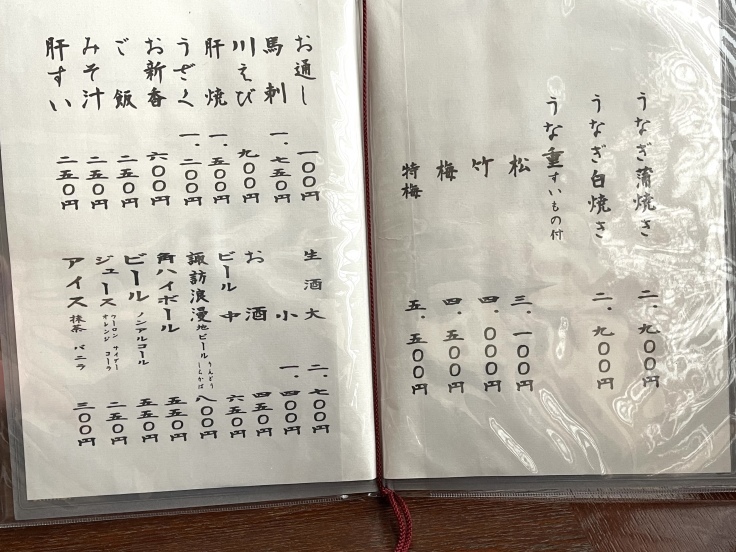 うなぎ蒲焼き 二、九〇〇円
うなぎ白焼き 二、九〇〇円
うな重 すいもの付
松 三、一〇〇円
竹 四、〇〇〇円
梅 四、五〇〇円
特梅 五、五〇〇円
お通し 一〇〇円
馬刺 一、七五〇円
川えび 九〇〇円
肝焼 一、五〇〇円
うざく 一、二〇〇円
お新香 六〇〇円
ご飯 二五〇円
みそ汁 二五〇円
肝すい 二五〇円
生酒 大 二、七〇〇円
小 一、四〇〇円
お酒 四五〇円
ビール 中 六五〇円
諏訪浪漫 地ビール りんどう しらかば 八〇〇円
角ハイボール 五五〇円
ビール ノンアルコール 五五〇円
ジュース ウーロン サイダー オレンジ コーラ 二五〇円
アイス 抹茶 バニラ 三〇〇円